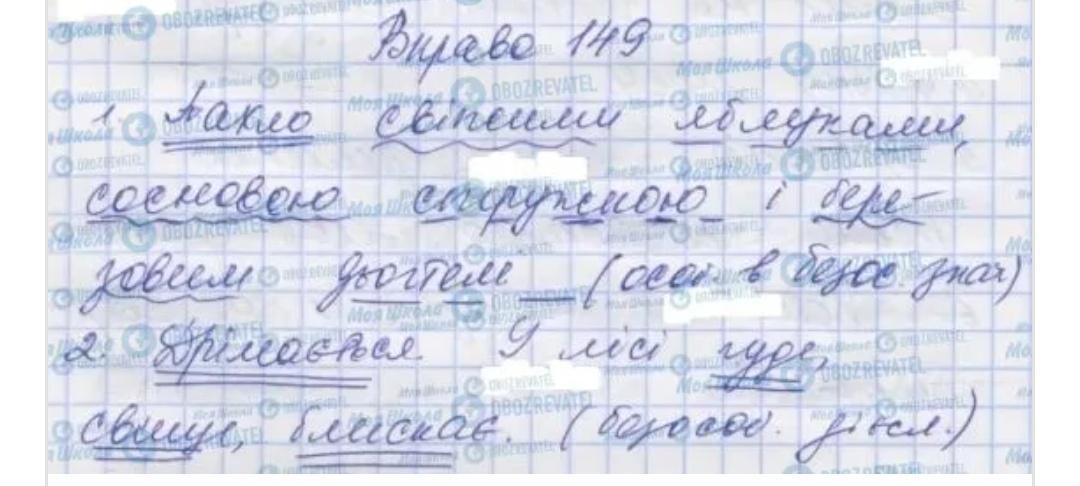 Вправа 149
1. Пахло свіжими яблуками,
сосновою стружкою і бере-
зовим дьогтем (особ. в безос. знач)
2. Дрімається. У лісі гуде,
свище, блискає. (безособ. дієсл.)